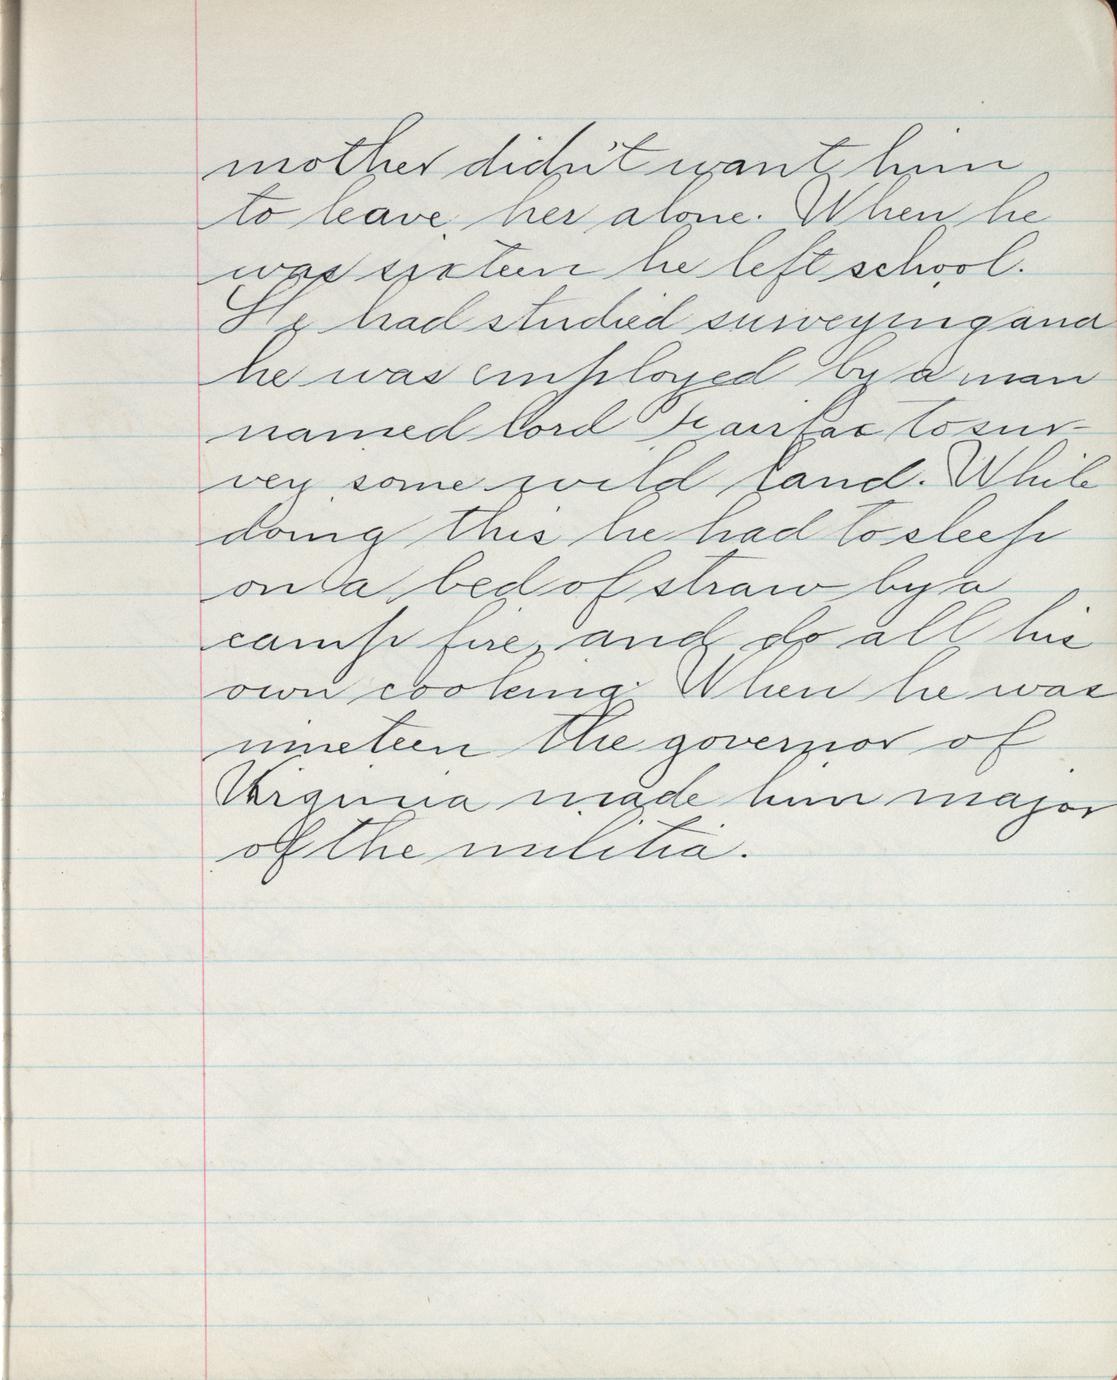 mother didn't want him
to leave her alone. When he
was sixteen he left school.
He had studied surveying and
he was employed by a man
named lord Fairfax to sur-
vey some wild land. While
doing this he had to sleep
on a bed of straw by a
camp fire, and do all his
own cooking. When he was
nineteen the governor of
Virginia made him major
of the militia.